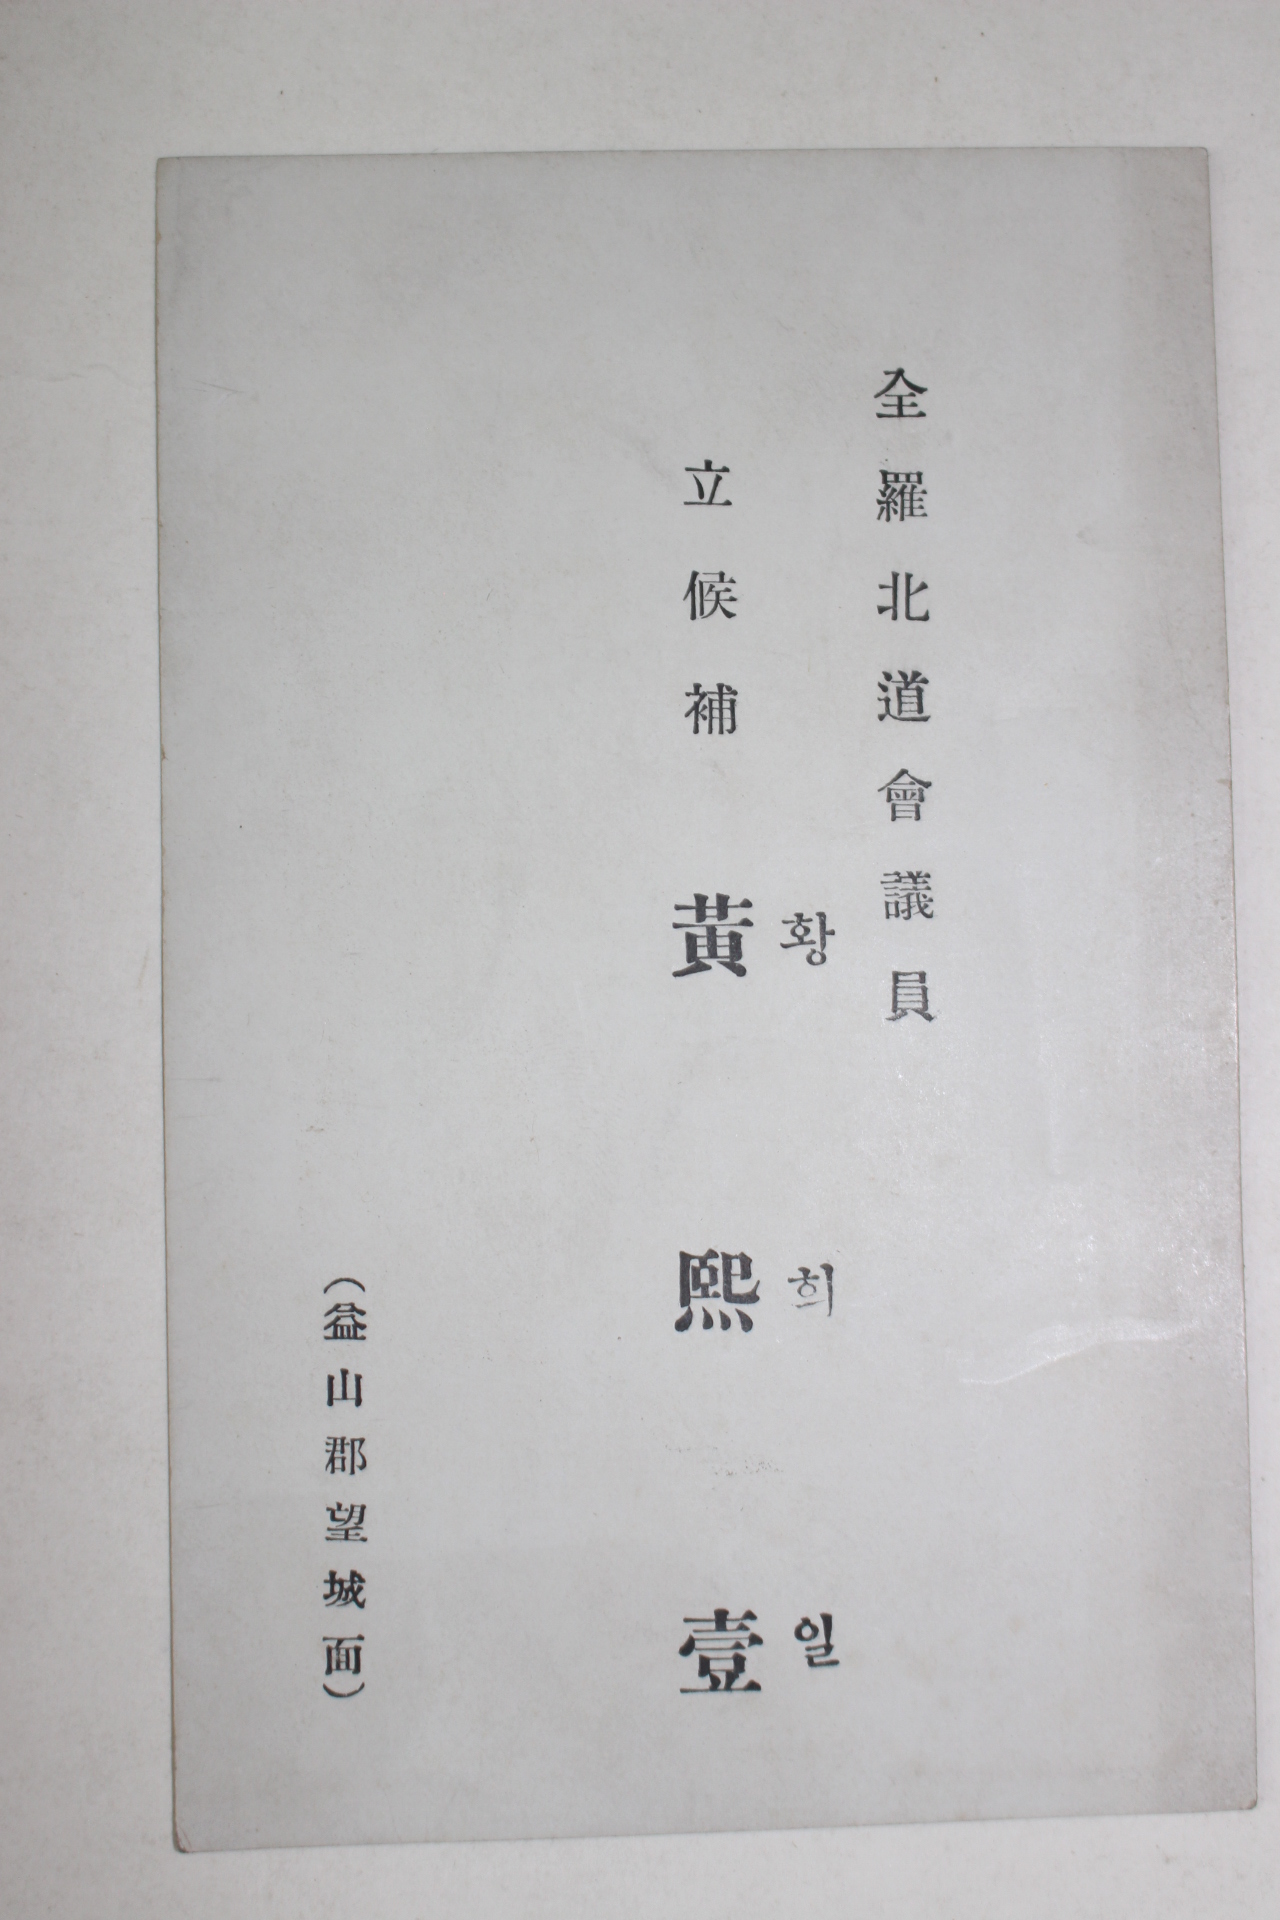 全羅北道會議員
立候補 黃熙壹
황희일
(益山郡望城面)